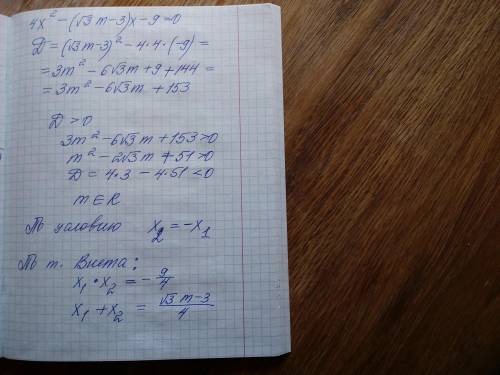 4x² - (√3 m - 3)x - 9 = 0
D = (√3 m - 3)² - 4·4·(-9) =
= 3m² - 6√3 m + 9 + 144 =
= 3m² - 6√3 m + 153
D > 0
3m² - 6√3 m + 153 > 0
m² - 2√3 m + 51 > 0
D = 4·3 - 4·51 < 0
m ∈ R
По условию x₂ = -x₁
По т. Виета:
x₁ · x₂ = - 9/4
x₁ + x₂ = (√3 m - 3)/4